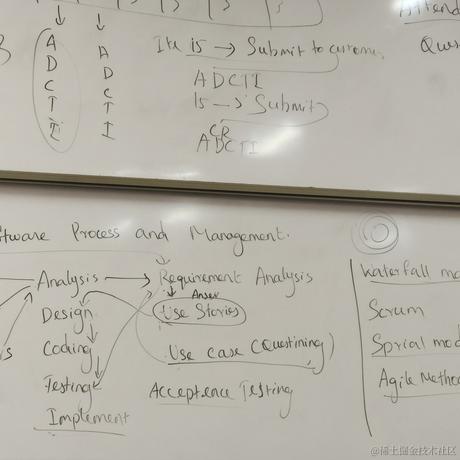 Attend
Ques
Ite 15 → Submit to customer
A
D
C
T
I
A
D
C
T
I
ADCTI
15 → Submit
CR
ADCTI
ftware Process and Management.
Analysis → Requirement Analysis
Design
Use Stories
Coding
Use case (Questining)
Testing
Acceptence Testing
Implement
Waterfall mo
Scrum
Sprial mod
Agile Method
@稀土掘金技术社区